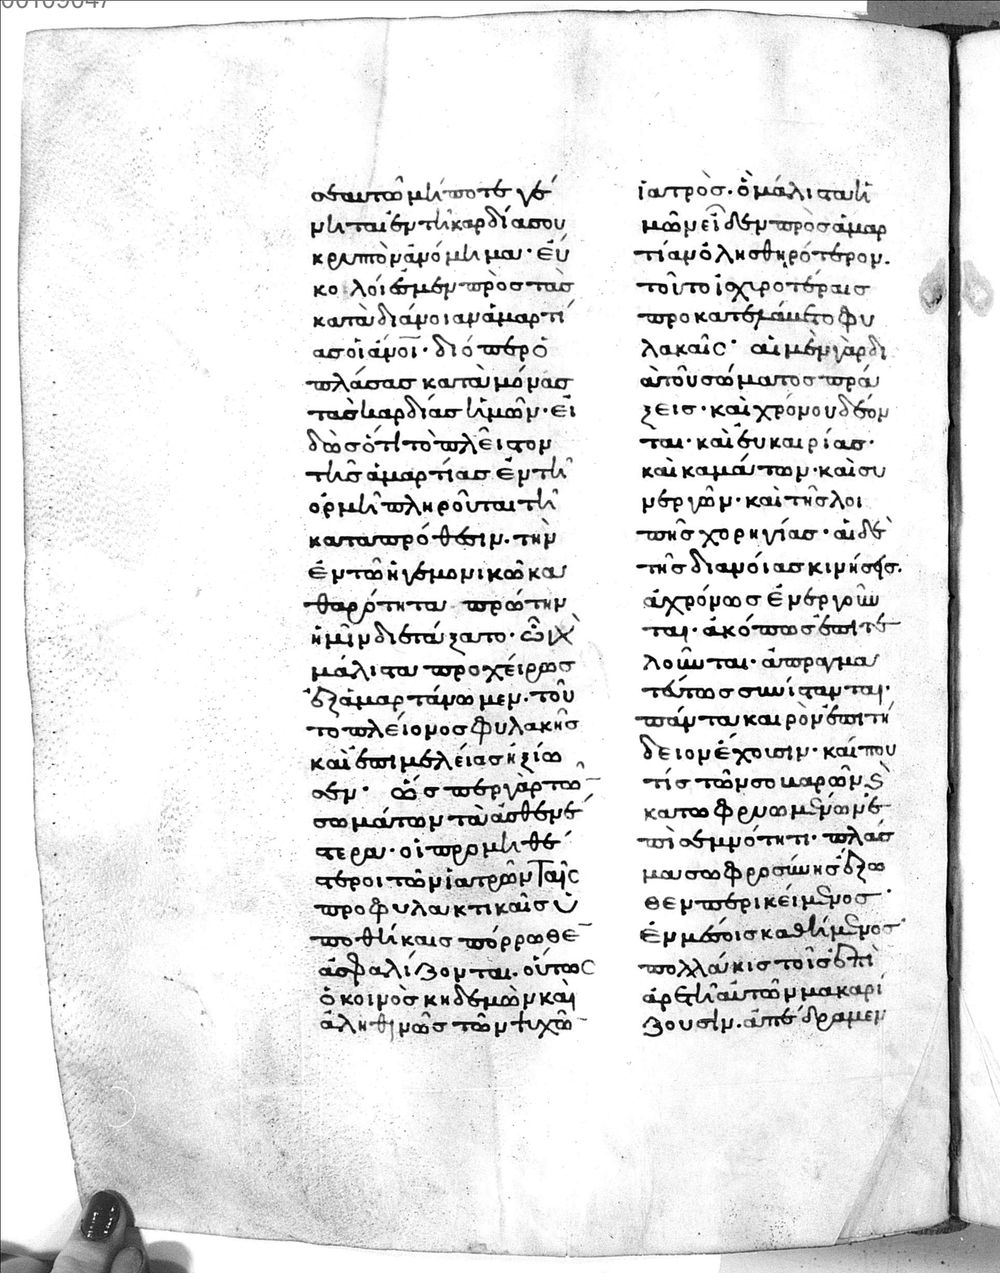 σεαυτῶ μήποτε γέ
νηται ἐν τῆ καρδία σου
κρυπτὸν ἀνόμημα· εὐ
κολοί ἐσμεν πρὸς τὰς
κατὰ διάνοιαν ἁμαρτί
ας οἱ ἄνοι· διόπερ ὁ
πλάσας καταμόνας
τὰς καρδίας ἡμῶν· εἰ
δὼς ὅτι τὸ πλεῖστον
τῆς ἁμαρτίας ἐν τῆ
ὁρμῆ πληροῦται τῆ
κατα πρόθεσιν. τὴν
ἐν τῶ ἡγεμονικῶ κα
θαρότητα πρώτην
ἡμῖν διετάξατο· ὧ
μάλιστα προχείρως
ἐξαμαρτάνομεν. τού
το πλείονος φυλακῆς
καὶ ἐπιμελείας ἠξίω
σεν· ὥσπερ γὰρ τῶ
σωμάτων τὰ ἀσθενέ
στερα· οἱ προμηθέ
στεροι τῶν ἰατρῶν ταῖς
προφυλακτικαῖς ὑ
ποθήκαις πόρρωθε
ἀσφαλίζονται. οὕτως
ὁ κοινὸς κηδεμὼν καὶ
ἀληθινὸς τῶν ψυχῶ
ἰατρὸς. ὃ μάλιστα ἡ
μῶν εἶδεν πρὸς ἁμαρ
τίαν ὀλισθηρότερον.
τοῦτο ἰσχυροτέραις
προκατελάβετο φυ
λακαῖς· αἱ μὲν γὰρ δι
ὰ τοῦ σώματος πρά
ξεις· καὶ χρόνου δέον
ται· καὶ εὐκαιρίας·
καὶ καμάτων· καὶ συ
νεργῶν· καὶ τῆς λοι
πῆς χορηγίας· αἱ δὲ
τῆς διανοίας κινήσεις.
ἀχρόνως ἐνεργοῦν
ται· ἀκόπως ἐπιτε
λοῦνται· ἀπραγμα
τεύτως συνίστανται·
πάντα καιρὸν ἐπιτή
δειον ἔχουσιν· καί που
τίς τῶν σοβαρῶν καὶ
κατωφρυωμένων ἐ
πὶ σεμνότητι· πλάσ
μα σωφροσύνης ἔξω
θεν περικείμενος·
ἐν μέσοις καθήμενος
πολλάκις τοῖς ἐπὶ
ἀρετῆ αὐτὸν μακαρί
ζουσιν. ἀπέδραμεν